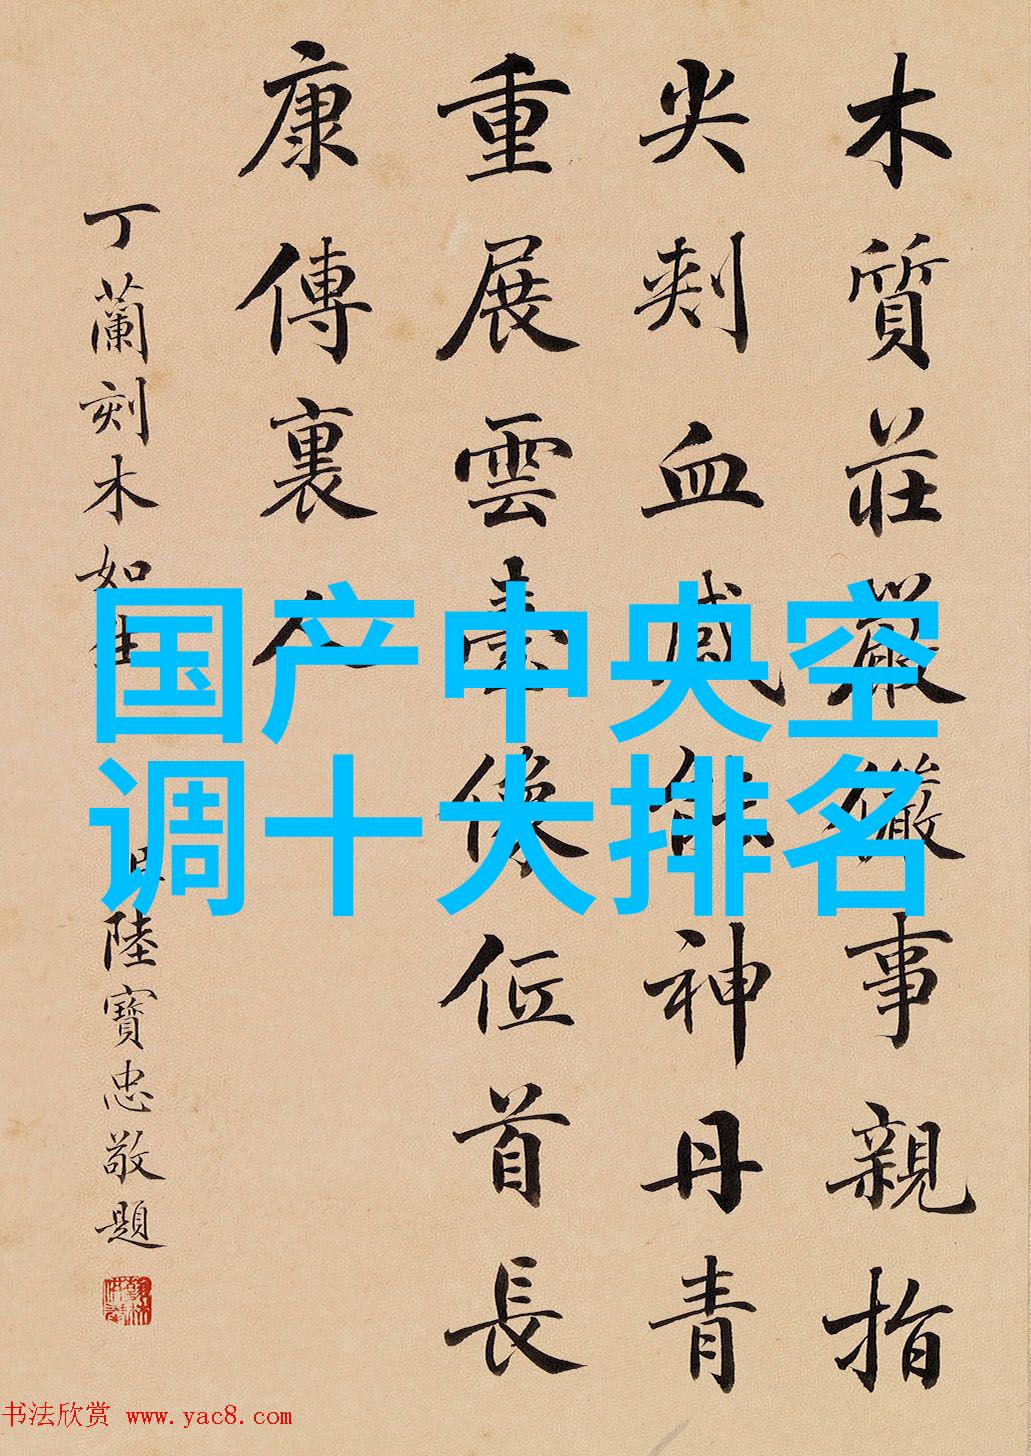 木質莊嚴儼事親指
尖刺血感能神丹青
重展雲臺像位首長
康傳裏人
丁蘭刻木如生
臣陸寶忠敬題
国产中央空
调十大排名
书法欣赏 www.yac8.com